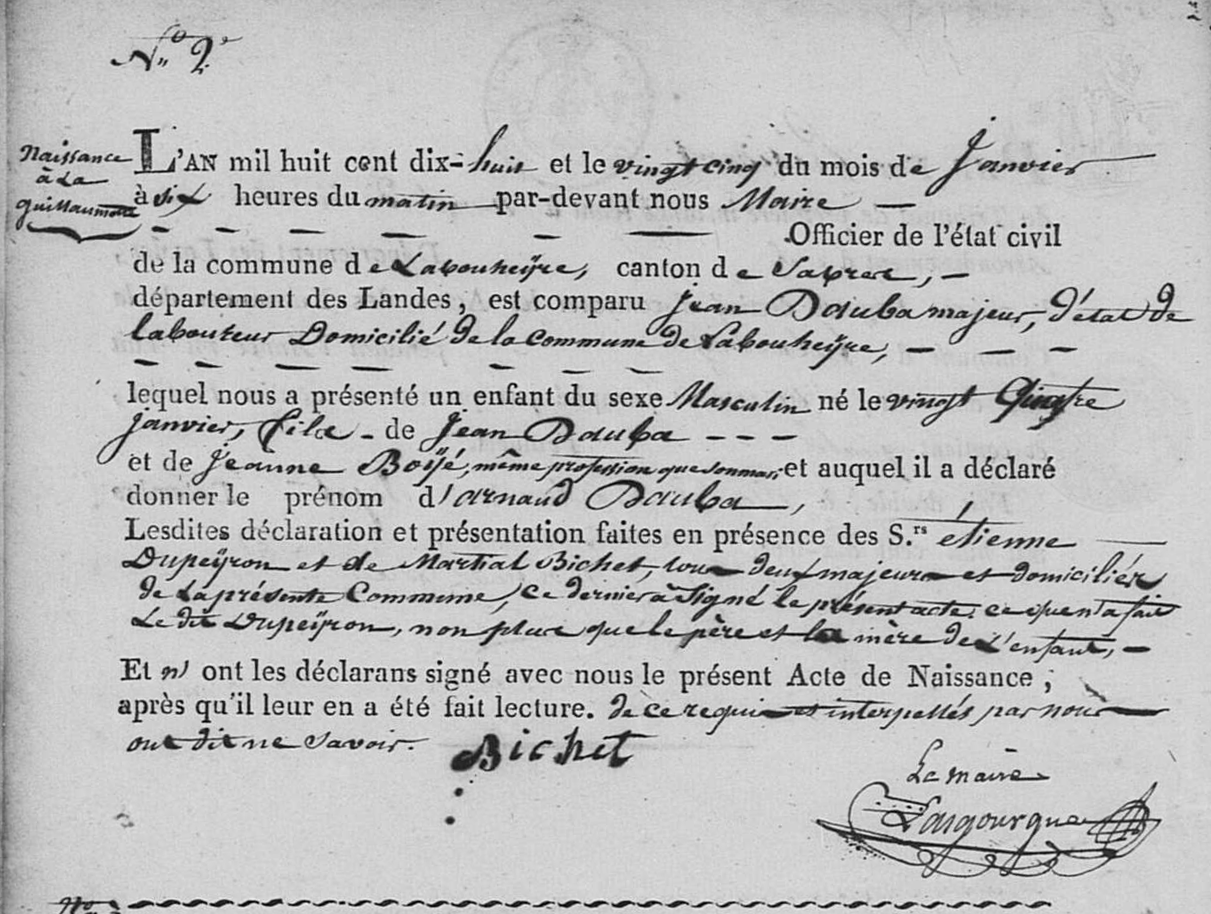 N.° 2.
Naissance
à La
guillaumotte
L'AN mil huit cent dix-huit et le vingt cinq du mois de Janvier
à six heures du matin par-devant nous Maire —
Officier de l'état civil
de la commune de Labouheÿre, canton de Sabres, —
département des Landes, est comparu Jean Dauba majeur, d'état de
laboureur Domicilié de la commune de Labouheÿre, — — —
lequel nous a présenté un enfant du sexe Masculin né le vingt Quatre
janvier, fils - de Jean Dauba - - -
et de Jeanne Boijé, même profession que son mari, et auquel il a déclaré
donner le prénom d'arnaud Dauba,
Lesdites déclaration et présentation faites en présence des S.rs étienne
Dupeÿron et de Martial Bichet, tous deux majeurs et domiciliés
de La présente Commune, ce dernier à signé le présent acte, ce que n'a fait
Le dit Dupeÿron, non plus que le père et la mère de L'enfant, —
Et n' ont les déclarans signé avec nous le présent Acte de Naissance,
après qu'il leur en a été fait lecture. de ce requis et interpellés par nous
ont dit ne savoir. Bichet
Le maire
Largourgue